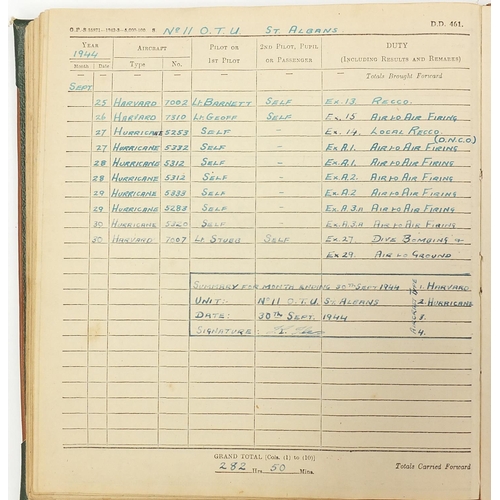 No 11 O.T.U. St. Albans
D.D. 461.
Year Aircraft Pilot or 2nd Pilot, Pupil Duty
1944 1st Pilot or Passenger (Including Results and Remarks)
Month Date Type No. — Totals Brought Forward
Sept
25 Harvard 7002 Lt Barnett Self Ex. 13. Recco.
26 Harvard 7510 Lt Geoff Self Ex. 15 Air to Air Firing
27 Hurricane 5253 Self - Ex. 14. Local Recco.
(D.N.C.O)
27 Hurricane 5332 Self - Ex A.1. Air to Air Firing
28 Hurricane 5312 Self - Ex A.1. Air to Air Firing
28 Hurricane 5312 Self - Ex A.2. Air to Air Firing
29 Hurricane Self - Ex A.2 Air to Air Firing
29 Hurricane 5283 Self - Ex A.3.A Air to Air Firing
30 Hurricane 5320 Self - Ex. A.3.A Air to Air Firing
30 Harvard 7007 Lt Stubb Self Ex 27. Dive Bombing +
Ex 29. Air to Ground
Summary for month ending 30th Sept 1944 1. Harvard
Unit:- No 11 O.T.U. St. Albans 2. Hurricane
Date: 30th Sept. 1944 3.
Signature: 4.
Aircraft Type
GRAND TOTAL [Cols. (1) to (10)]
282 Hrs. 50 Mins.
Totals Carried Forward